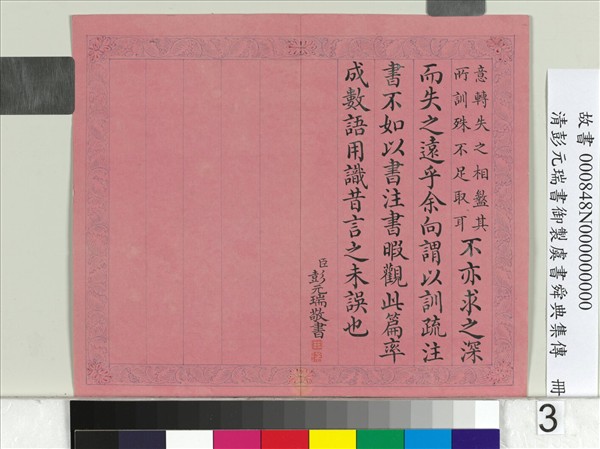 故書 000848N000000000
清彭元瑞書御製虞書舜典集傳 冊
3
意轉失之相盭其
所訓殊不足取耳
不亦求之深
而失之遠乎余向謂以訓疏注
書不如以書注書暇觀此篇率
成數語用識昔言之未誤也
臣彭元瑞敬書